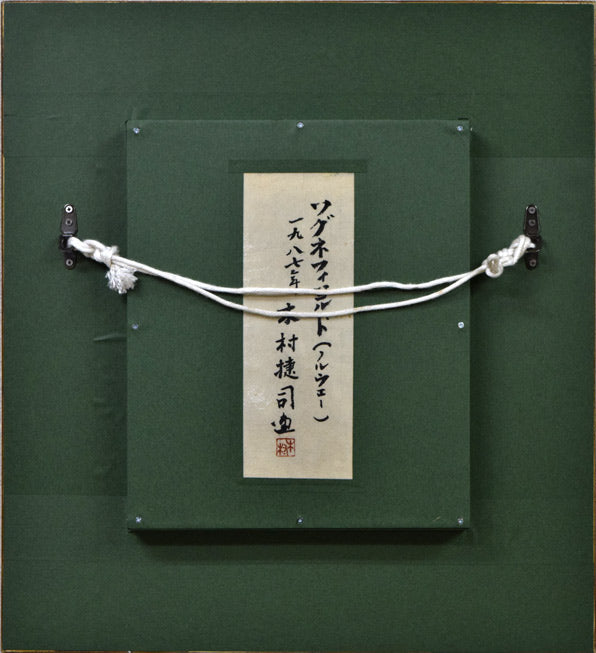 ソグネフィヨルド(ノルウェー)
一九八七年 木村捷司画
木村